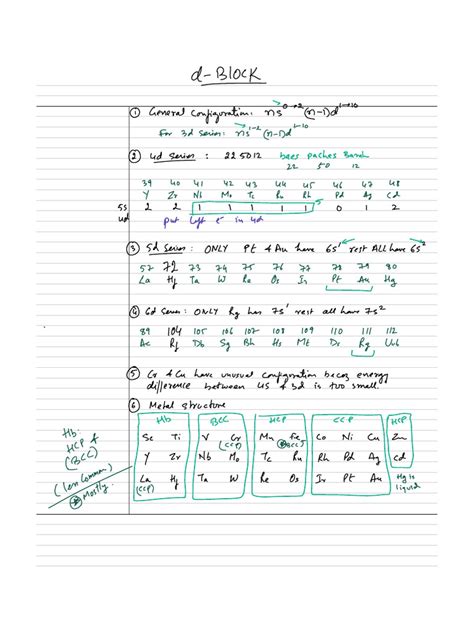 d-BLOCK
① General Configuration: ns⁰→² (n-1)d¹→¹⁰
For 3d series: ns¹⁻² (n-1)d¹⁻¹⁰
② 4d series : 22 5012 bees pachas Barah
22 50 12
39 40 41 42 43 44 45 46 47 48
Y Zr Nb Mo Tc Ru Rh Pd Ag Cd
5s 2 2 1 1 1 1 1 0 1 2
4d put left e⁻ in 4d
③ 5d series: ONLY Pt & Au have 6s¹ rest All have 6s²
57 72 73 74 75 76 77 78 79 80
La Hf Ta W Re Os Ir Pt Au Hg
④ 6d series: ONLY Rg has 7s¹ rest all have 7s²
89 104 105 106 107 108 109 110 111 112
Ac Rf Db Sg Bh Hs Mt Ds Rg Uub
⑤ Cr & Cu have unusual configuration becoz energy
difference between 4s & 3d is too small.
⑥ Metal structure
Hb BCC HCP CCP HCP
Sc Ti V Cr (CCP) Mn Fe (BCC) Co Ni Cu Zn
Y Zr Nb Mo Tc Ru Rh Pd Ag Cd
La (CCP) Hf Ta W Re Os Ir Pt Au Hg is
liquid
Hb:
HCP &
(BCC)
(less common)
Mostly